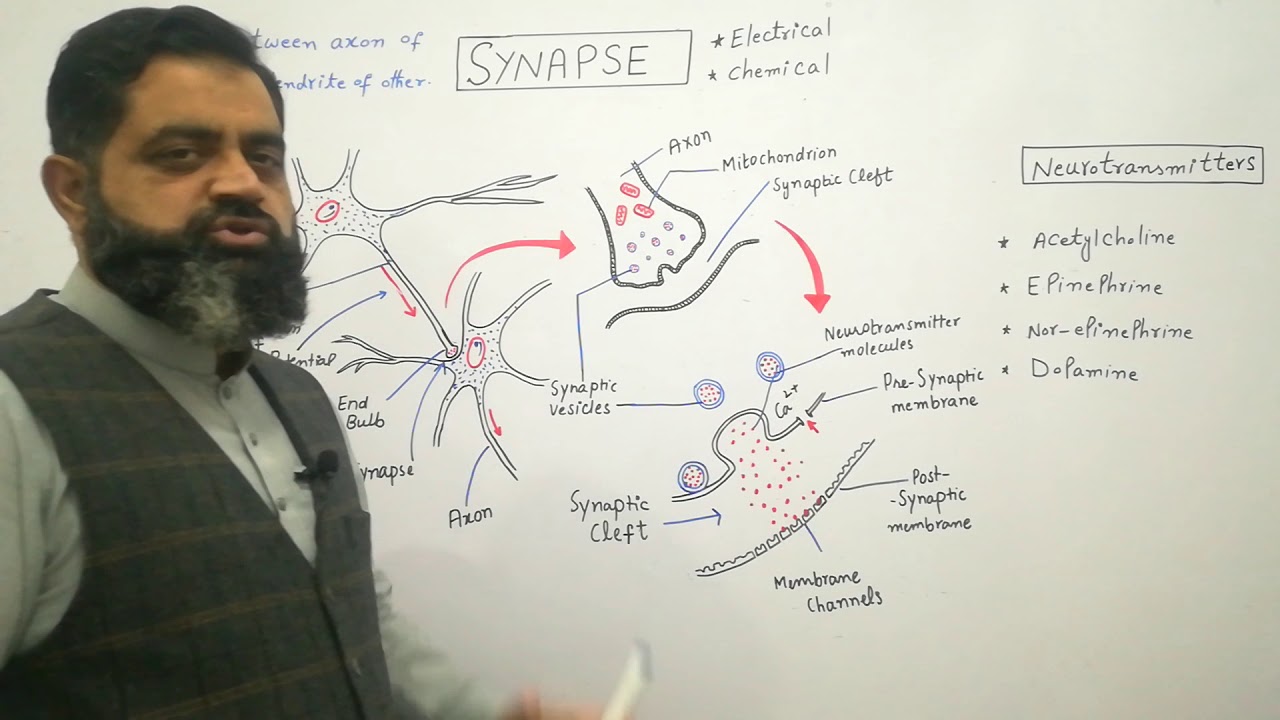 axon of
SYNAPSE
* Electrical
of other.
* Chemical
Axon
Mitochondrion
Synaptic Cleft
Neurotransmitters
* Acetylcholine
* Epinephrine
* Nor-epinephrine
* Dopamine
Potential
End
Bulb
Axon
Synaptic
vesicles
Neurotransmitter
molecules
Ca2+
Pre-Synaptic
membrane
Synaptic
Cleft
Post-
-Synaptic
membrane
Membrane
Channels